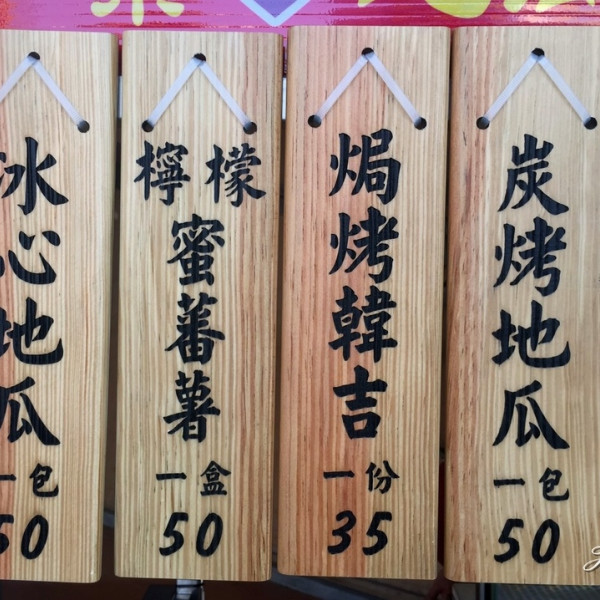 冰心地瓜
一包
50
檸檬
蜜蕃薯
一盒
50
焗烤韓吉
一份
35
炭烤地瓜
一包
50